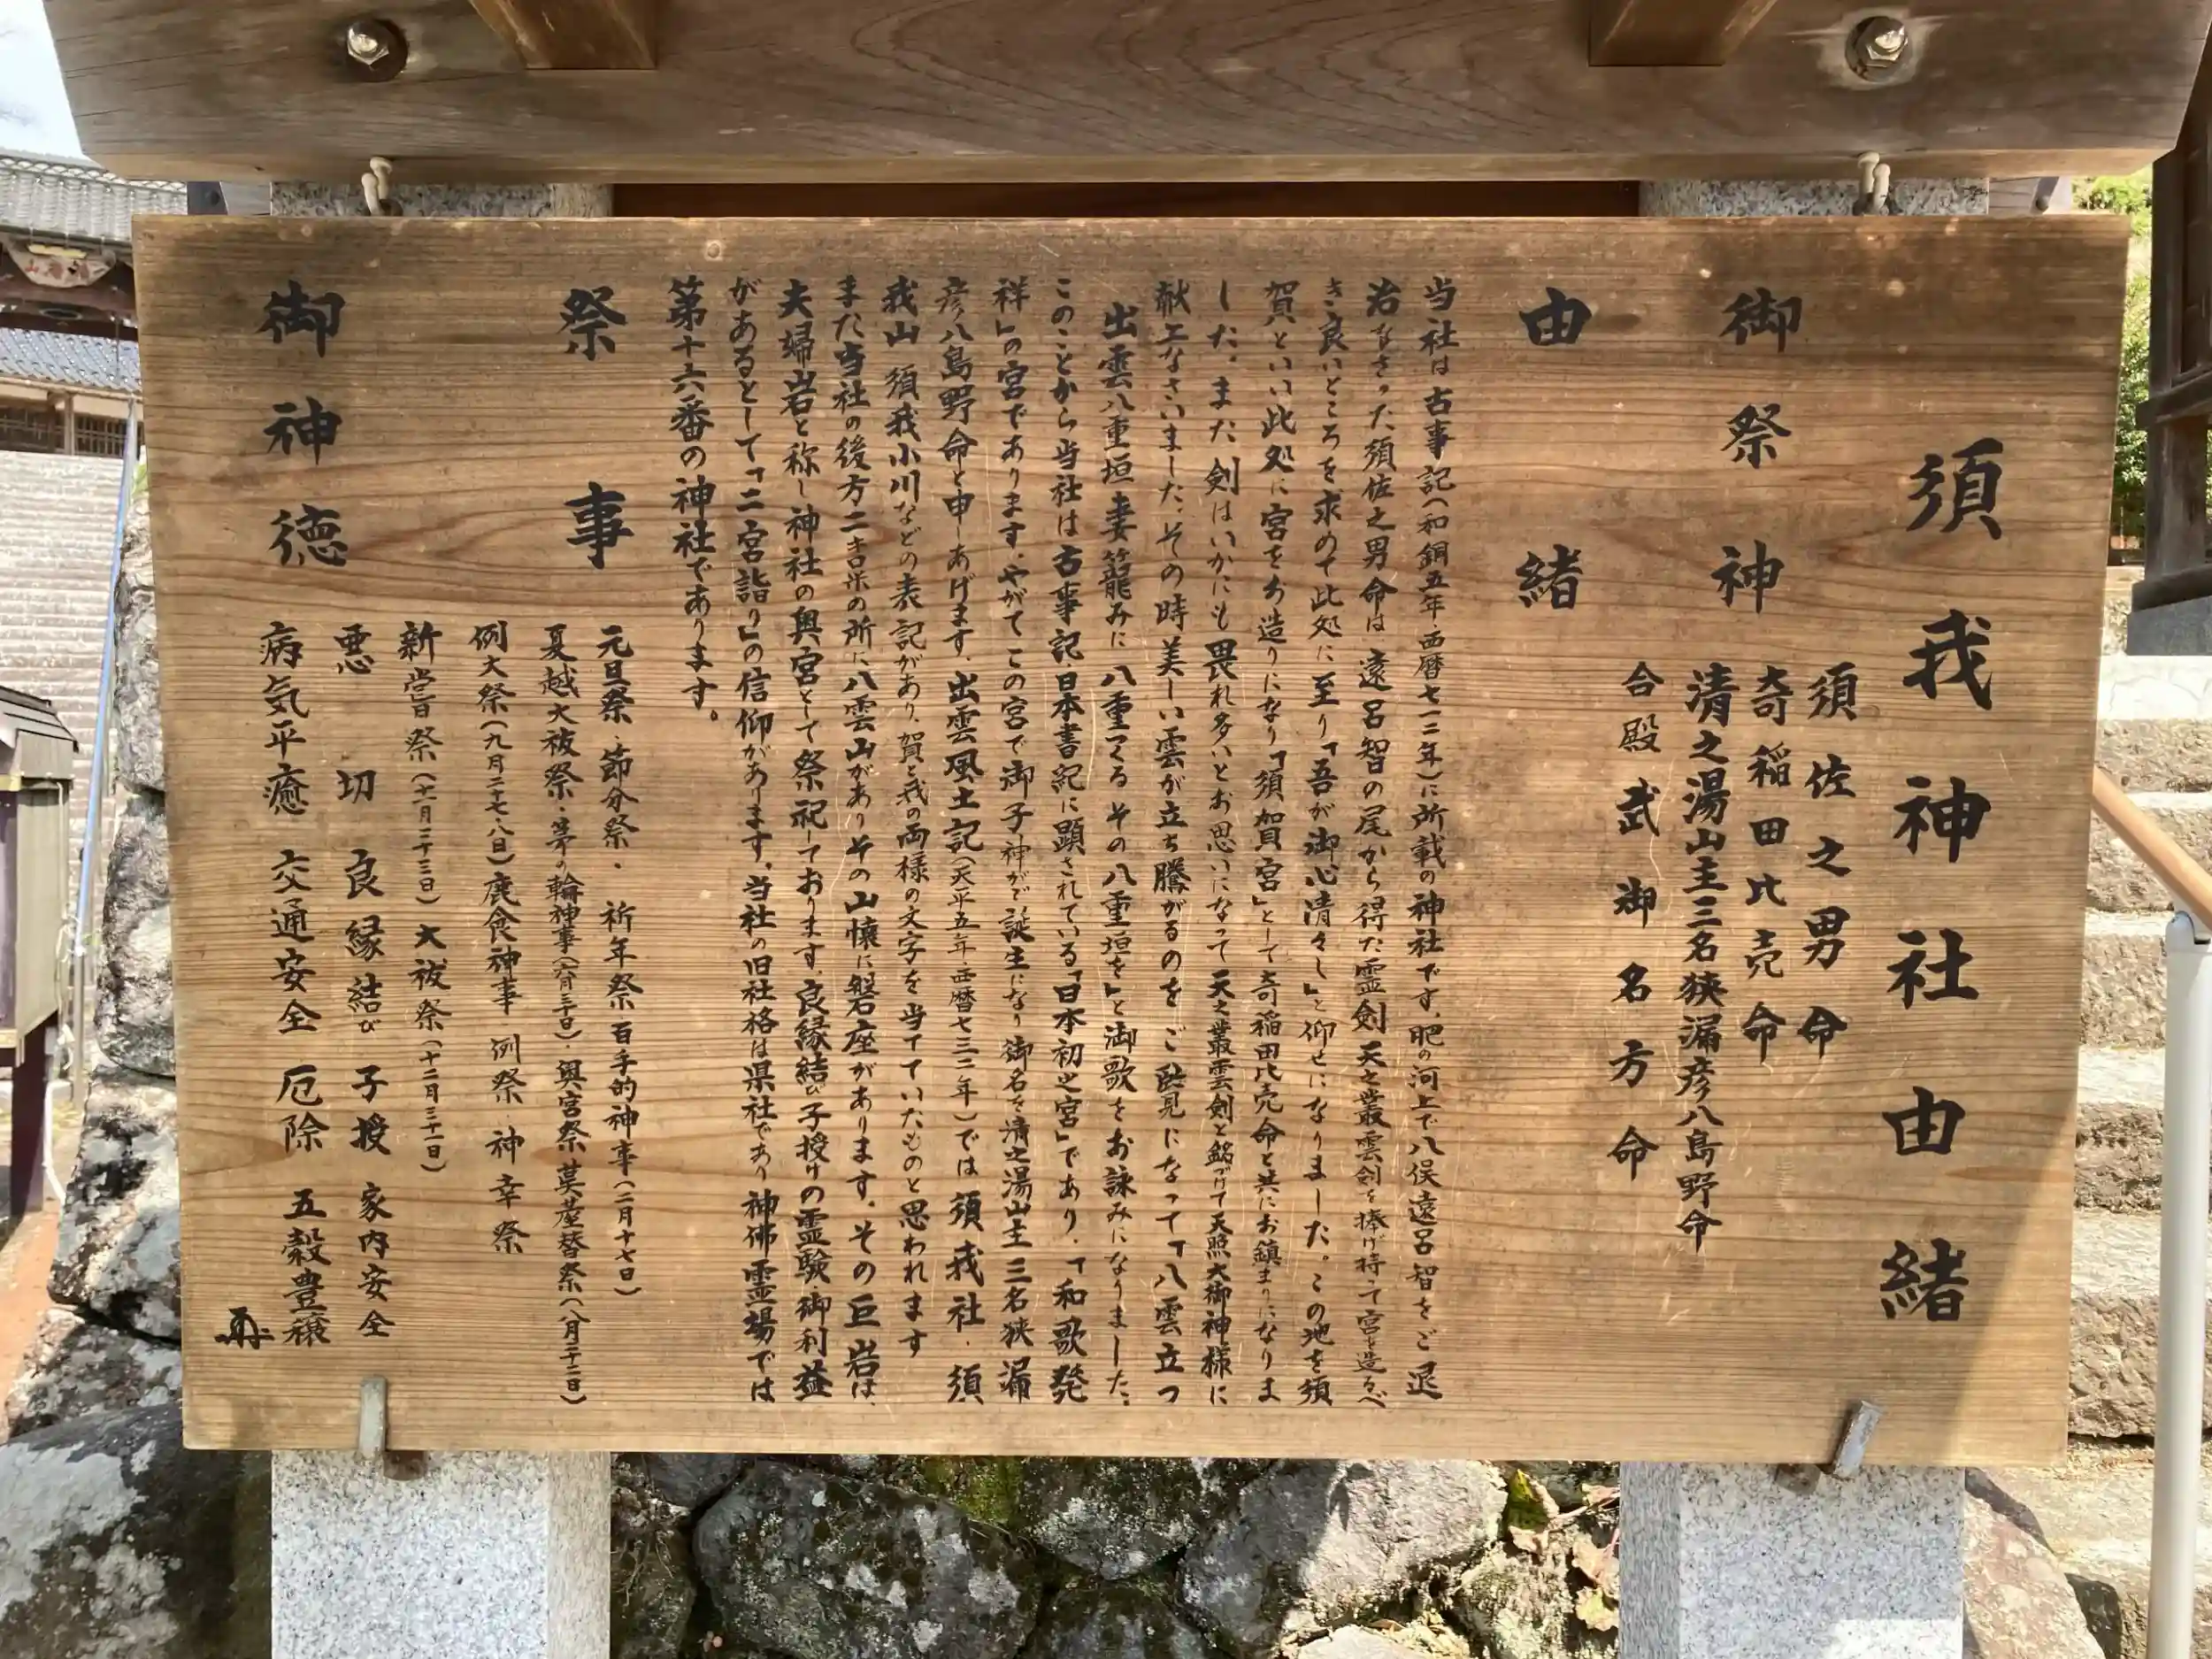 須我神社由緒
御祭神
須佐之男命
奇稲田比売命
清之湯山主三名狭漏彦八島野命
合殿 武御名方命
由緒
当社は古事記(和銅五年・西暦七一二年)に所載の神社です。肥の河上で八俣遠呂智をご退
治なさった須佐之男命は 遠呂智の尾から得た霊剣 天之叢雲剣を捧げ持って宮を造るべ
き良いところを求めて此処に至り「吾が御心清々し」と仰せになりました。この地を須
賀といい此処に宮をお造りになり「須賀宮」として奇稲田比売命と共にお鎮まりになりま
した。また 剣はいかにも畏れ多いとお思いになって 天之叢雲剣と銘づけて天照大御神様に
献上なさいました。その時美しい雲が立ち騰がるのをご覧になって「八雲立つ
出雲八重垣 妻籠みに 八重つくる その八重垣を」と御歌をお詠みになりました。
このことから当社は古事記・日本書紀に顕されている「日本初之宮」であり、「和歌発
祥」の宮であります。やがてこの宮で御子神がご誕生になり御名を清之湯山主三名狭漏
彦八島野命と申しあげます。出雲風土記(天平五年・西暦七三三年)では 須我社・須
我山 須我小川などの表記があり、賀と我の両様の文字を当てていたものと思われます
また当社の後方二キロ米の所に八雲山がありその山懐に磐座があります。その巨岩は、
夫婦岩と称し神社の奥宮として祭祀しております。良縁結び子授けの霊験・御利益
があるとして「二宮詣り」の信仰があります。当社の旧社格は県社であり 神佛霊場では
第十六番の神社であります。
祭事
元旦祭・節分祭・祈年祭 百手的神事(二月十七日)
夏越大祓祭・茅の輪神事(六月三十日)・奥宮祭 茣蓙替祭(八月二十二日)
例大祭(九月二十七・八日)鹿食神事 例祭・神幸祭
新嘗祭(十一月二十三日)大祓祭(十二月三十一日)
御神徳
悪切 良縁結び 子授 家内安全
病気平癒 交通安全 厄除 五穀豊穣